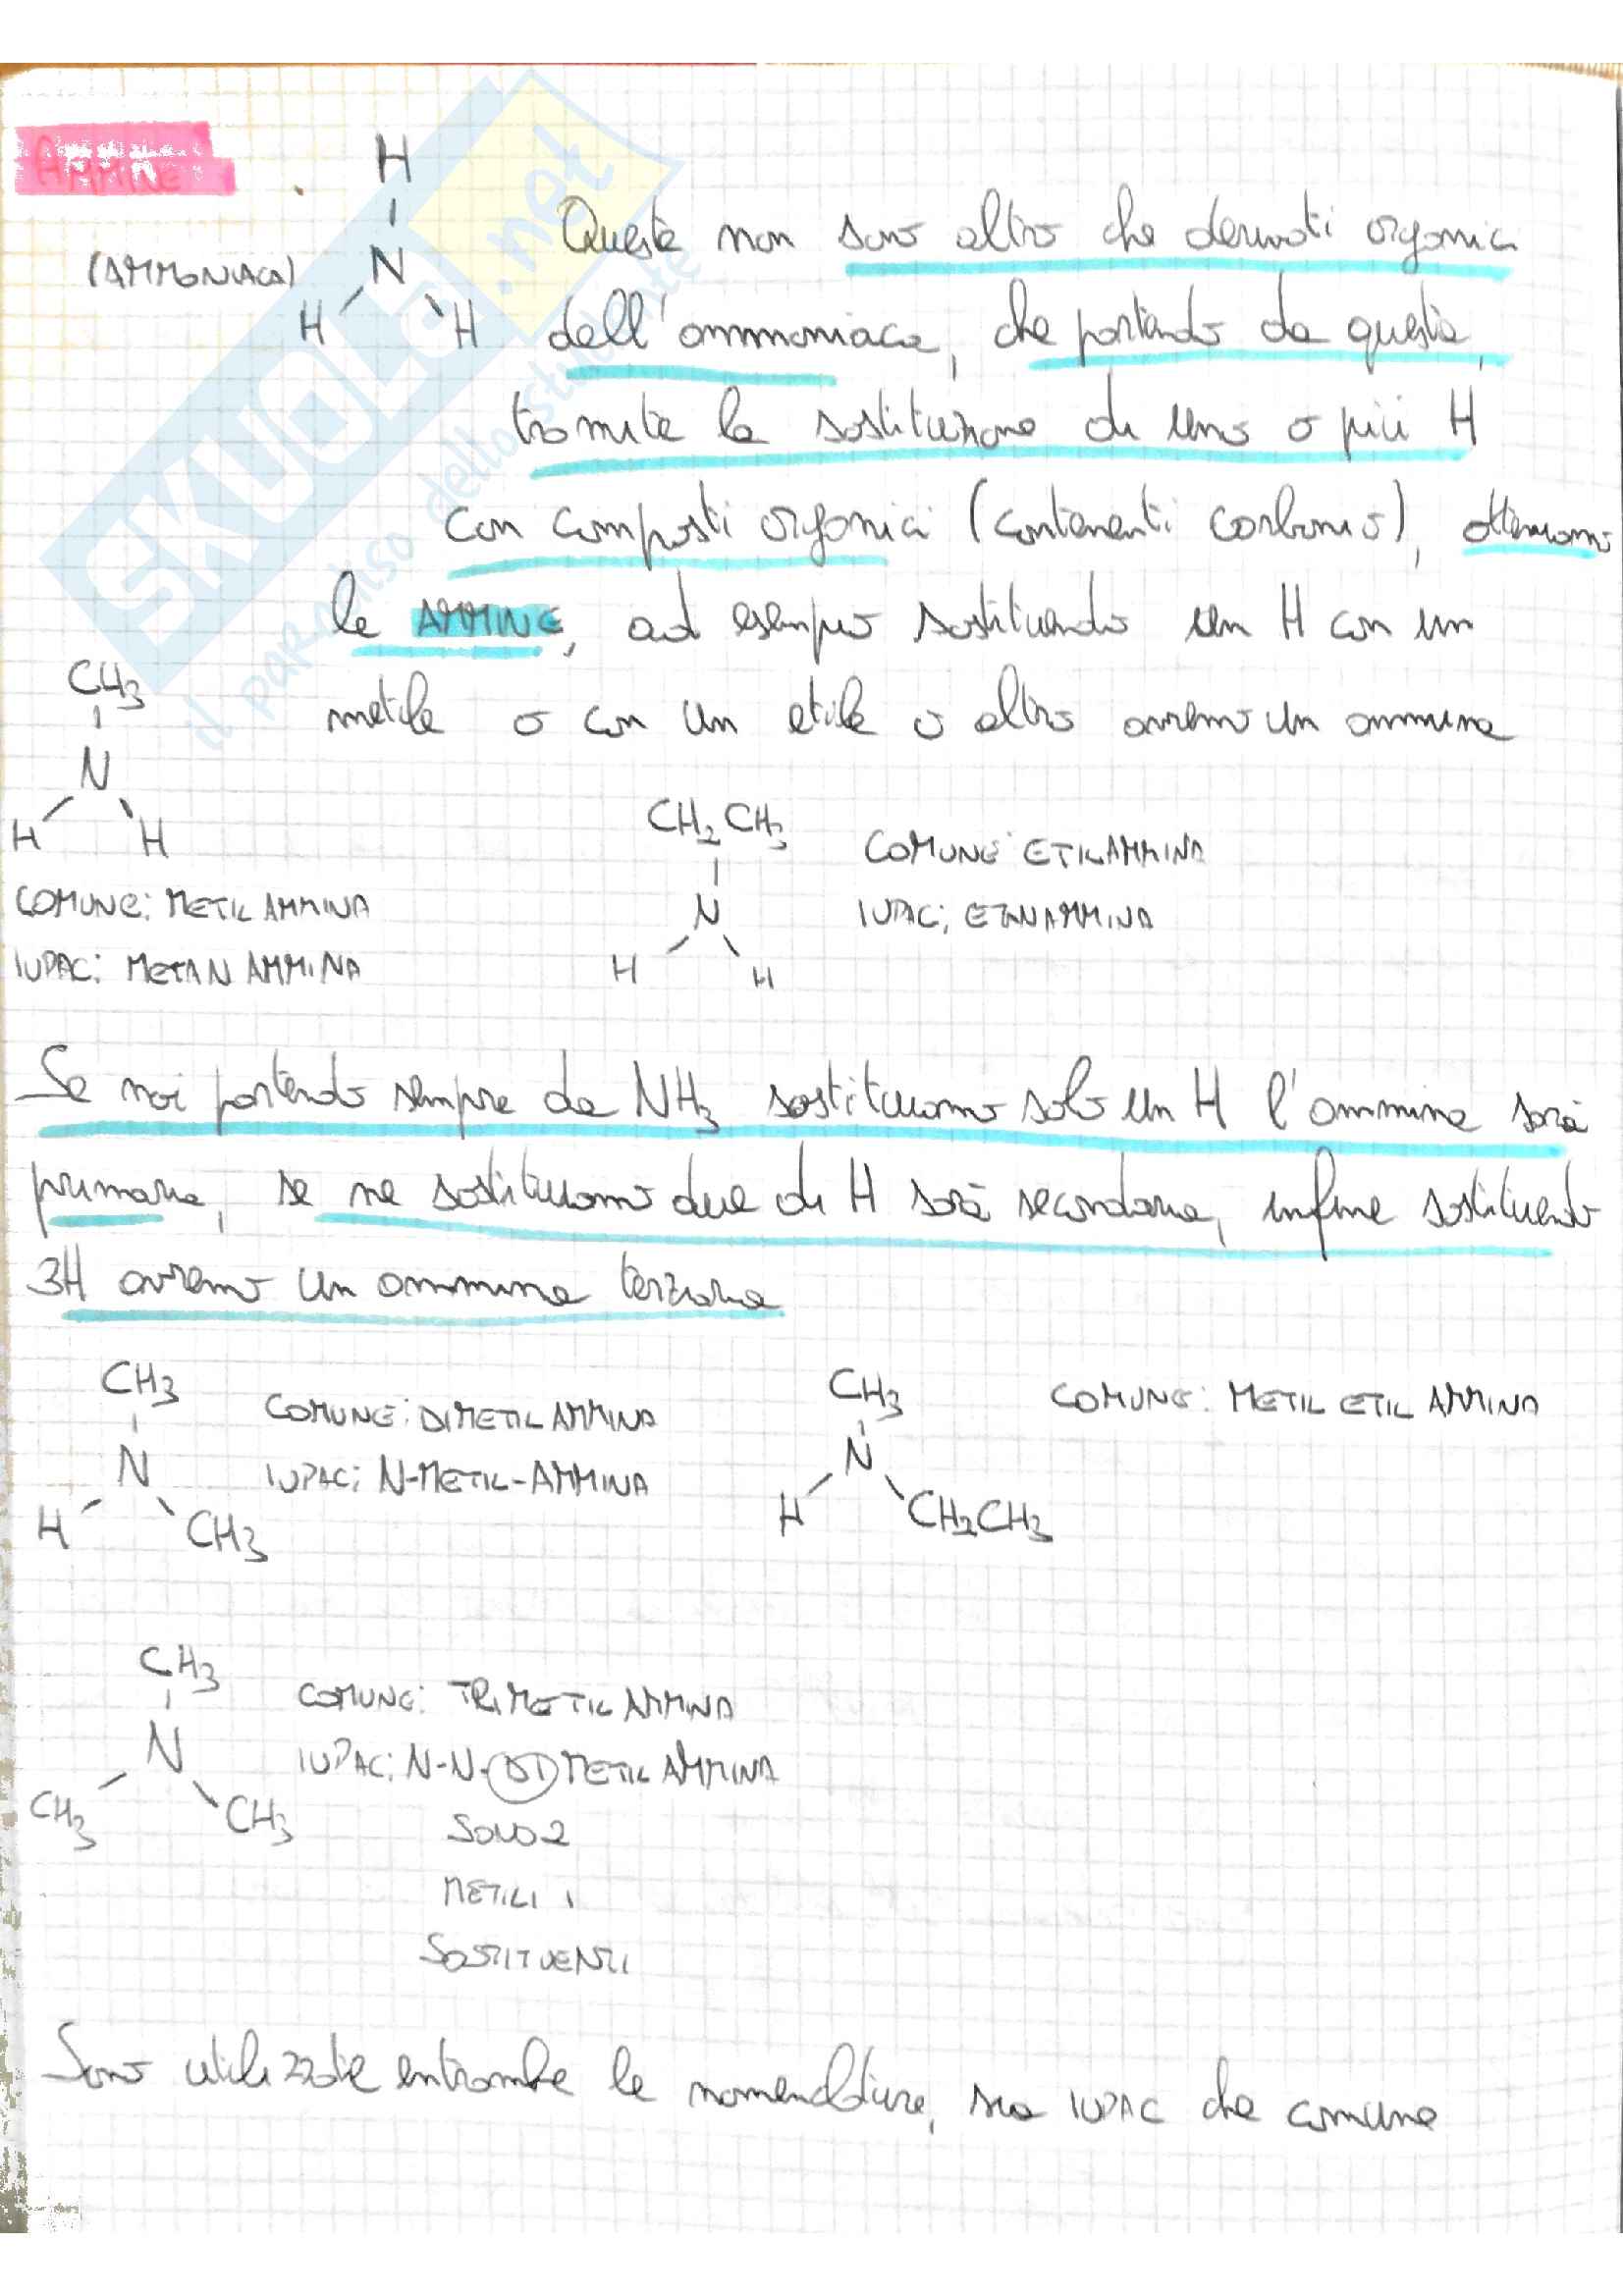 AMMINE
H
(AMMONIACA) N
H H
Queste non sono altro che derivati organici
dell'ammoniaca, che partendo da questa,
tramite la sostituzione di uno o più H
con composti organici (contenenti carbonio), otteniamo
le AMMINE, ad esempio sostituendo un H con un
metile o con un etile o altro avremo un ammina
CH3
N
H H
COMUNE: METIL AMMINA
IUPAC: METAN AMMINA
CH2 CH3
N
H H
COMUNE: ETILAMMINA
IUPAC: ETANAMMINA
Se noi partendo sempre da NH3 sostituiamo solo un H l'ammina sarà
primaria, se ne sostituiamo due di H sarà secondaria, infine sostituendo
3H avremo un ammina terziaria
CH3
N
H CH3
COMUNE: DIMETIL AMMINA
IUPAC: N-METIL-AMMINA
CH3
N
H CH2CH3
COMUNE: METIL ETIL AMMINA
CH3
N
CH3 CH3
COMUNE: TRIMETIL AMMINA
IUPAC: N-N-DIMETIL AMMINA
SONO 2
METILI I
SOSTITUENTI
Sono utilizzate entrambe le nomenclature, sia IUPAC che comune
SKUOLA.net
il paradiso dello studente